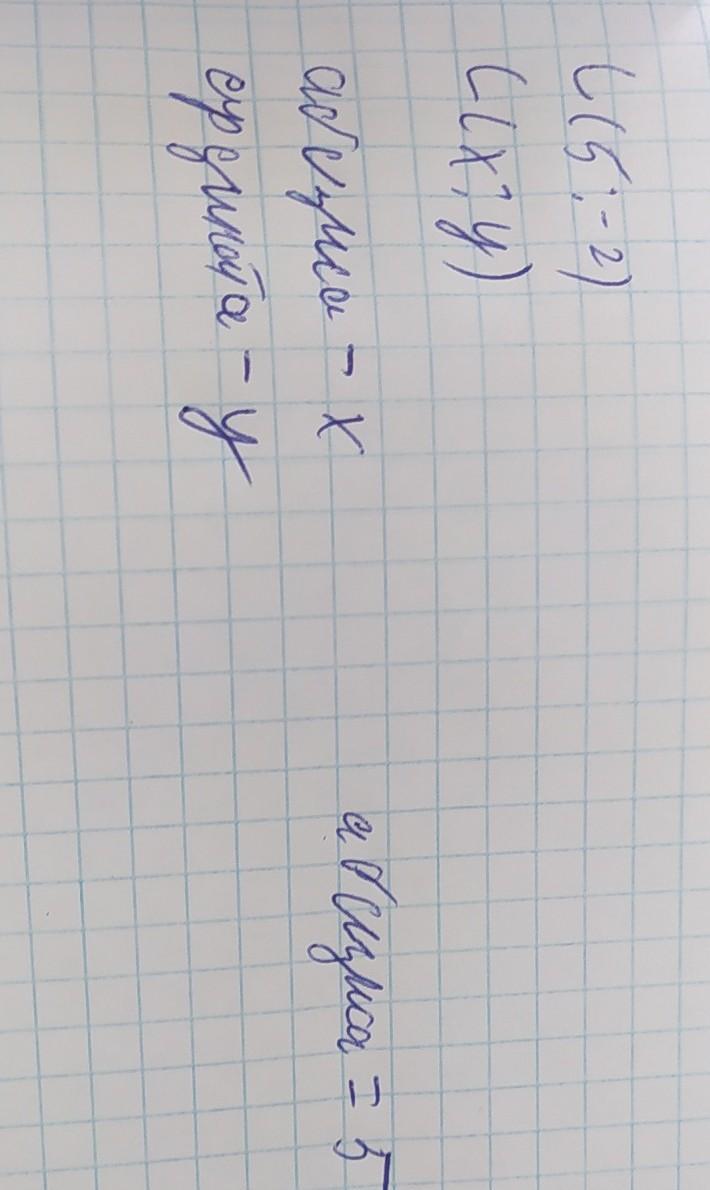 C(5;-2)
C(x;y)
абсциса - x
ордината - y
абсциса = 5